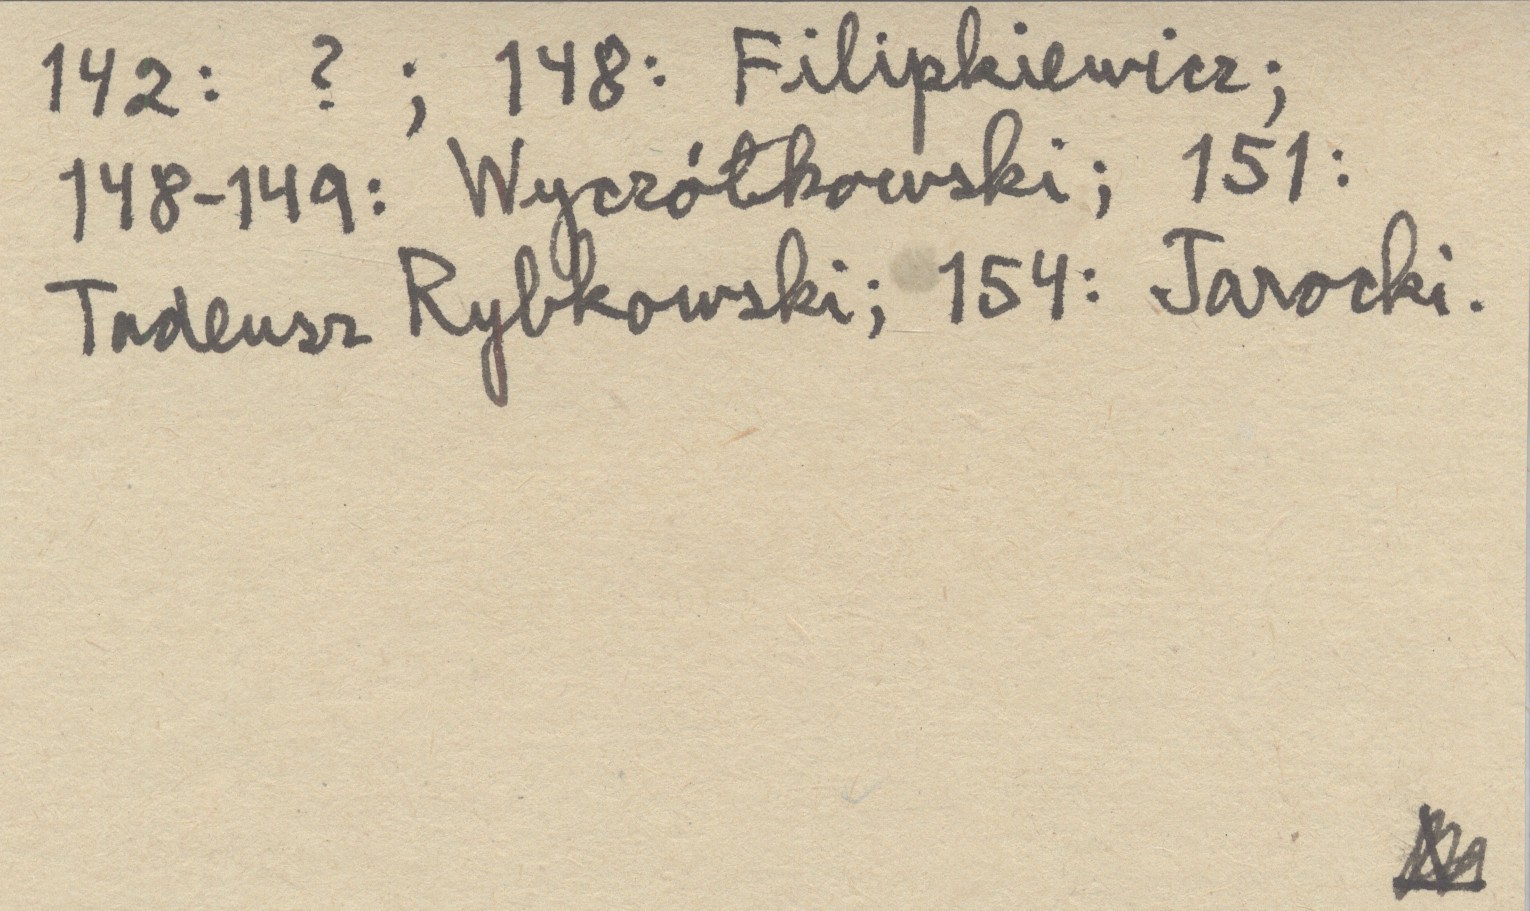 142: ? ; 148: Filipkiewicz;
148-149: Wyczółkowski; 151:
Tadeusz Rybkowski; 154: Jarocki.